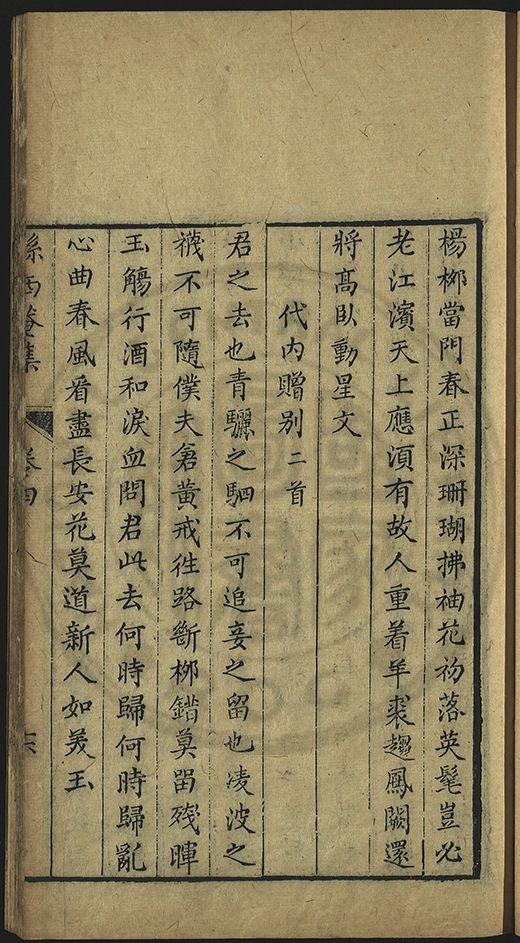 楊栁當門春正深珊瑚拂袖花初落英髦豈必
老江濱天上應湏有故人重着羊裘趨鳳闕還
將髙臥動星文
代内贈别二首
君之去也青驪之駟不可追妾之留也凌波之
襪不可隨僕夫倉黄戒徃路斷栁錯莫畱殘暉
玉觴行酒和淚血問君此去何時歸何時歸亂
心曲春風看盡長安花莫道新人如美玉
孫西菴集 卷四 十六